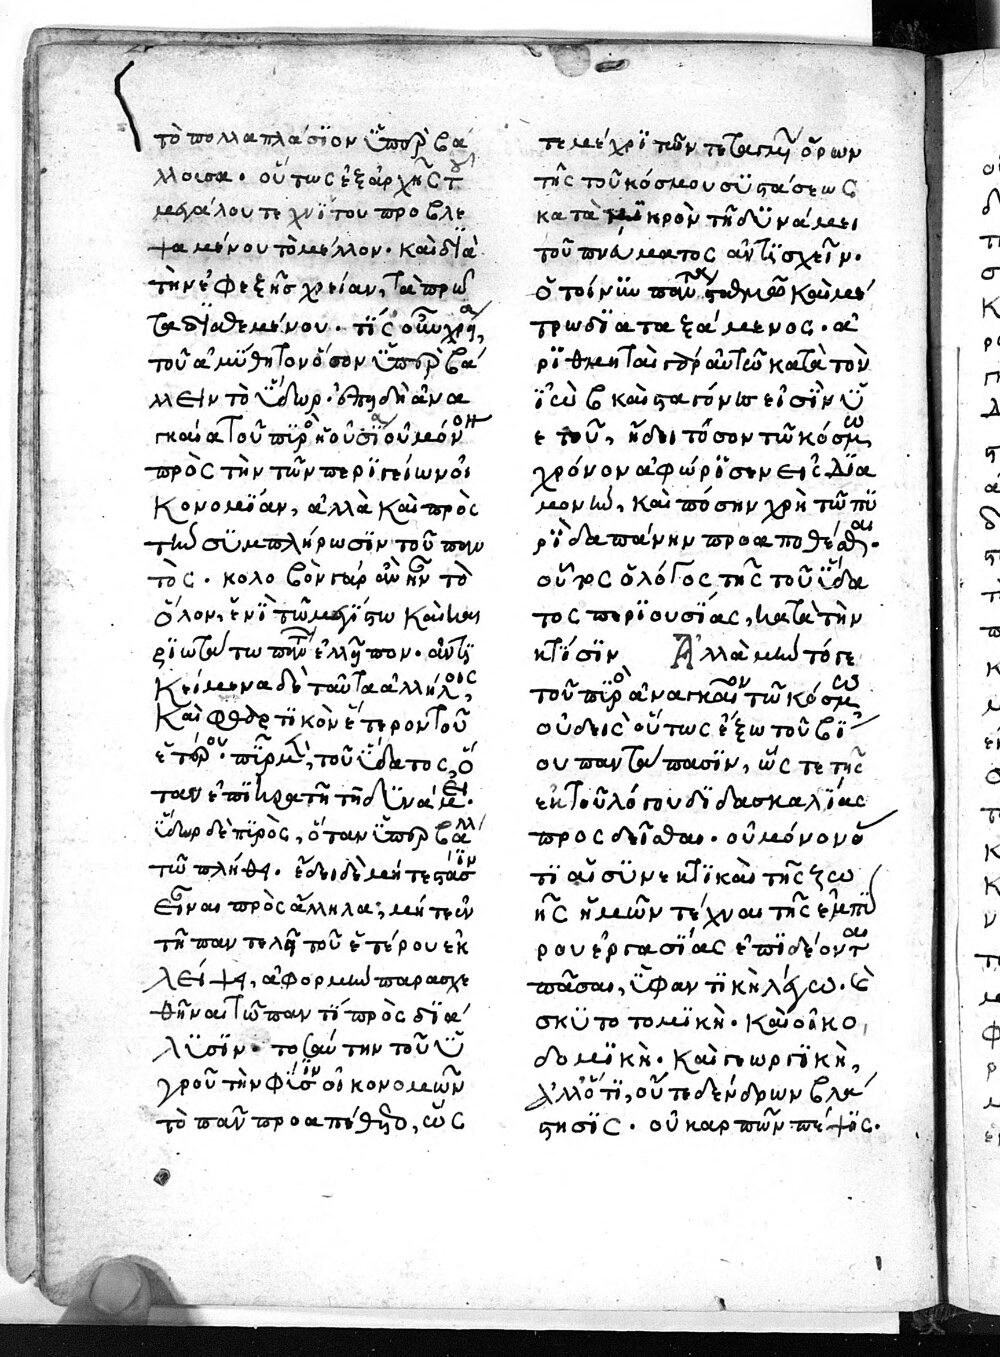 τὸ πολλαπλάσϊον ϋπερβάλ
λουσα. οὕτως ἐξἀρχῆς τοῦ
μεγάλου τεχνΐτου προβλε
ψαμένου τὸ μέλλον. καὶ δϊὰ
τὴν ἐφεξῆς χρείαν, τὰ πρῶ
τα δϊαθεμένου. τίς οὖν χρεία,
τοῦ ἀμϋθητον ὅσον ϋπερβάλ
λειν τὸ ϋδωρ. ἐπειδὴ ἀνα
γκαία τοῦ πϋρὸς ἡ οὐσΐα οὐ μόνον
πρὸς τὴν τῶν περϊγείων οἰ
κονομΐαν, ἀλλὰ καὶ πρὸς
τὴν σϋμπλήρωσϊν τοῦ παν
τὸς. κολοβὸν γὰρ ἂν ἦν τὸ
ὅλον, ἑνὶ τῶ μεγΐστω καὶ και
ρϊωτάτω πάντων ἐλλεῖπον. ἀντι
κείμενα δὲ ταῦτα ἀλλήλοις
καὶ φθαρτϊκὸν ἕτερον τοῦ
ἑτέρου. πῦρ μὲν, τοῦ ϋδατος, ὅ
ταν ἐπϊκρατῆ τῆ δϋνάμει.
ϋδωρ δὲ πϋρὸς, ὅταν ϋπερβάλλη
τῶ πλήθει. ἔδει δὲ μήτε στάσϊν
εἶναι πρὸς ἄλληλα, μήτε ἐν
τῆ παντελεῖ τοῦ ἑτέρου ἐκ
λείψει, ἀφορμὴν παρασχε
θῆναι τῶ παντΐ πρὸς δϊά
λϋσϊν. τοσαύτην τοῦ ϋ
γροῦ τὴν φΰσϊν ὁ οἰκονομῶν
τὸ πᾶν προαπέθετο, ὥς
τε μέχρϊ τῶν τεταγμένων ὅρων
τῆς τοῦ κόσμου σϋστάσεως
κατὰ μικρὸν τῆ δϋνάμει
τοῦ πυρὸς ἀντισχεῖν.
ὁ τοίνυν πάντα σταθμῶ καὶ μέ
τρω δϊαταξάμενος. ἀ
ρϊθμηταὶ γὰρ αὐτῶ κατὰ τὸν
ϊὼβ καὶ σταγόνες εἰσὶν ϋ
ετοῦ, ἤδει πόσον τῶ κόσμω
χρόνον ἀφώρϊσεν εἰς δϊα
μονὴν, καὶ πόσην χρὴ τῶ πϋ
ρϊ δαπάνην προαποθέσθαι.
οὗτος ὁ λόγος τῆς τοῦ ϋδα
τος περϊουσΐας, κατὰ τὴν
κτΐσϊν Ἀλλὰ μὴν τό γε
τοῦ πϋρὸς ἀναγκαῖον τῶ κόσμω
οὐδεὶς οὕτως ἔξω τοῦ βΐ
ου παντάπασϊν, ὥς τε τῆς
ἐκ τοῦ λόγου δϊδασκαλΐας
προσδεῖσθαι. οὐ μόνον ὅ
τϊ αἱ σϋνεκτϊκαὶ τῆς ζωῆς
ἡμῶν τέχναι τῆς ἐμπϋ
ρου ἐργασΐας ἐπϊδέονται
πᾶσαι, ϋφαντϊκὴ λέγω. καὶ
σκϋτοτομϊκὴ. καὶ οἰκο
δομϊκὴ. καὶ γεωργϊκὴ,
ἀλλ' ὅτϊ, οὔτε δένδρων βλά
στησϊς. οὐ καρπῶν πέψϊς.